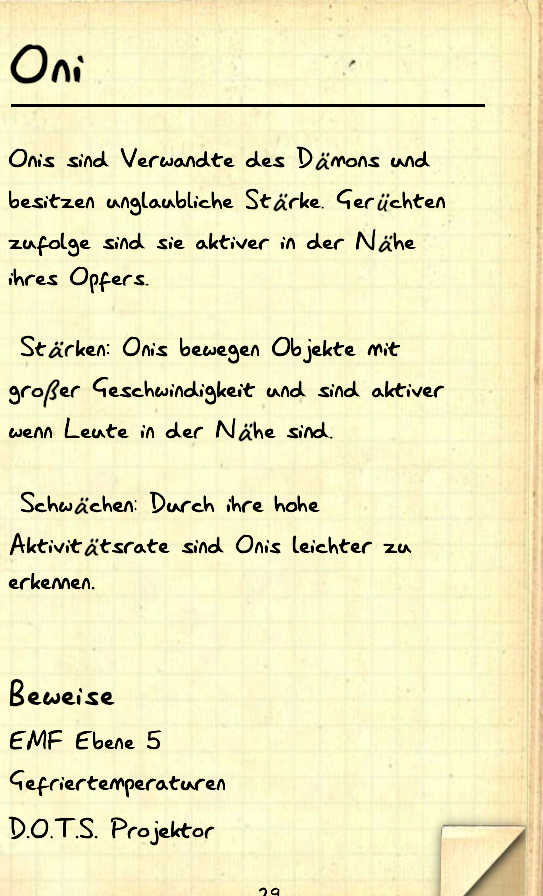 Oni
Onis sind Verwandte des Dämons und
besitzen unglaubliche Stärke. Gerüchten
zufolge sind sie aktiver in der Nähe
ihres Opfers.
Stärken: Onis bewegen Objekte mit
großer Geschwindigkeit und sind aktiver
wenn Leute in der Nähe sind.
Schwächen: Durch ihre hohe
Aktivitätsrate sind Onis leichter zu
erkennen.
Beweise
EMF Ebene 5
Gefriertemperaturen
D.O.T.S. Projektor
29